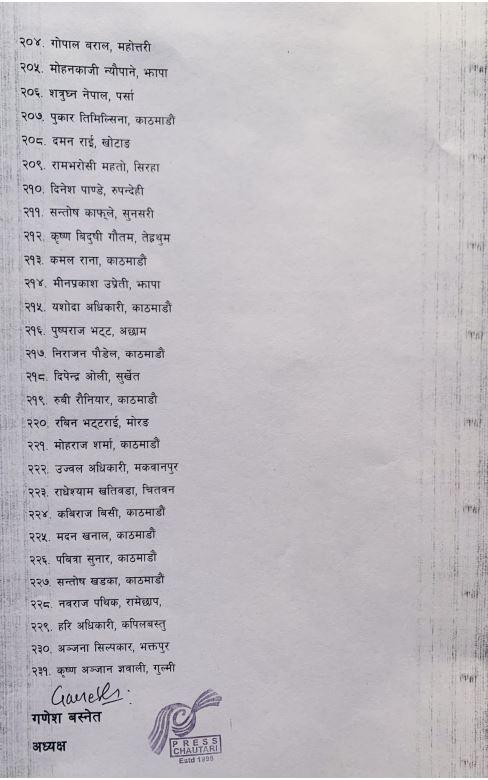 २०४. गोपाल बराल, महोत्तरी
२०५. मोहनकाजी न्यौपाने, झापा
२०६. शत्रुघ्न नेपाल, पर्सा
२०७. पुकार तिमिल्सिना, काठमाडौं
२०८. दमन राई, खोटाङ
२०९. रामभरोसी महतो, सिरहा
२१०. दिनेश पाण्डे, रुपन्देही
२११. सन्तोष काफ्ले, सुनसरी
२१२. कृष्ण बिदुषी गौतम, तेह्रथुम
२१३. कमल राना, काठमाडौं
२१४. मीनप्रकाश उप्रेती, झापा
२१५. यशोदा अधिकारी, काठमाडौं
२१६. पुष्पराज भट्ट, अछाम
२१७. निराजन पौडेल, काठमाडौं
२१८. दिपेन्द्र ओली, सुर्खेत
२१९. रुबी रौनियार, काठमाडौं
२२०. रबिन भट्टराई, मोरङ
२२१. मोहराज शर्मा, काठमाडौं
२२२. उज्वल अधिकारी, मकवानपुर
२२३. राधेश्याम खतिवडा, चितवन
२२४. कबिराज बिसी, काठमाडौं
२२५. मदन खनाल, काठमाडौं
२२६. पबित्रा सुनार, काठमाडौं
२२७. सन्तोष खडका, काठमाडौं
२२८. नवराज पथिक, रामेछाप,
२२९. हरि अधिकारी, कपिलबस्तु
२३०. अञ्जना सिल्पकार, भक्तपुर
२३१. कृष्ण अञ्जान ज्ञवाली, गुल्मी
Ganesh
गणेश बस्नेत
अध्यक्ष
PRESS
CHAUTARI
Estd 1998